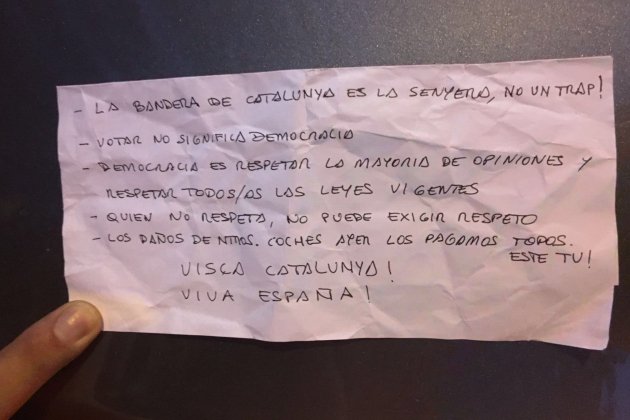 - LA BANDERA DE CATALUNYA ES LA SENYERA, NO UN TRAP!
- VOTAR NO SIGNIFICA DEMOCRACIA
- DEMOCRACIA ES RESPETAR LA MAYORIA DE OPINIONES Y
RESPETAR TODOS/AS LAS LEYES VIGENTES
- QUIEN NO RESPETA, NO PUEDE EXIGIR RESPETO
- LOS DAÑOS DE NTROS. COCHES AYER LOS PAGAMOS TODOS.
ESTE TU!
VISCA CATALUNYA!
VIVA ESPAÑA!